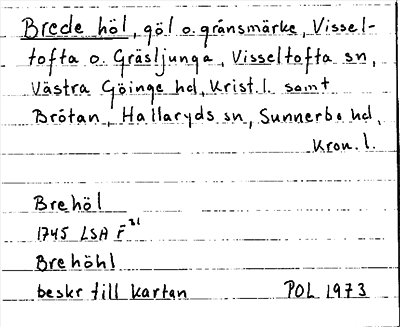 Brede höl, göl o. gränsmärke, Vissel-
tofta o. Gräsljunga, Visseltofta sn,
Västra Göinge hd, Krist. l. samt
Brötan, Hallaryds sn, Sunnerbo hd,
Kron. l.
Brehöl
1745 LSA F 31
Brehöhl
beskr till kartan POL 1973